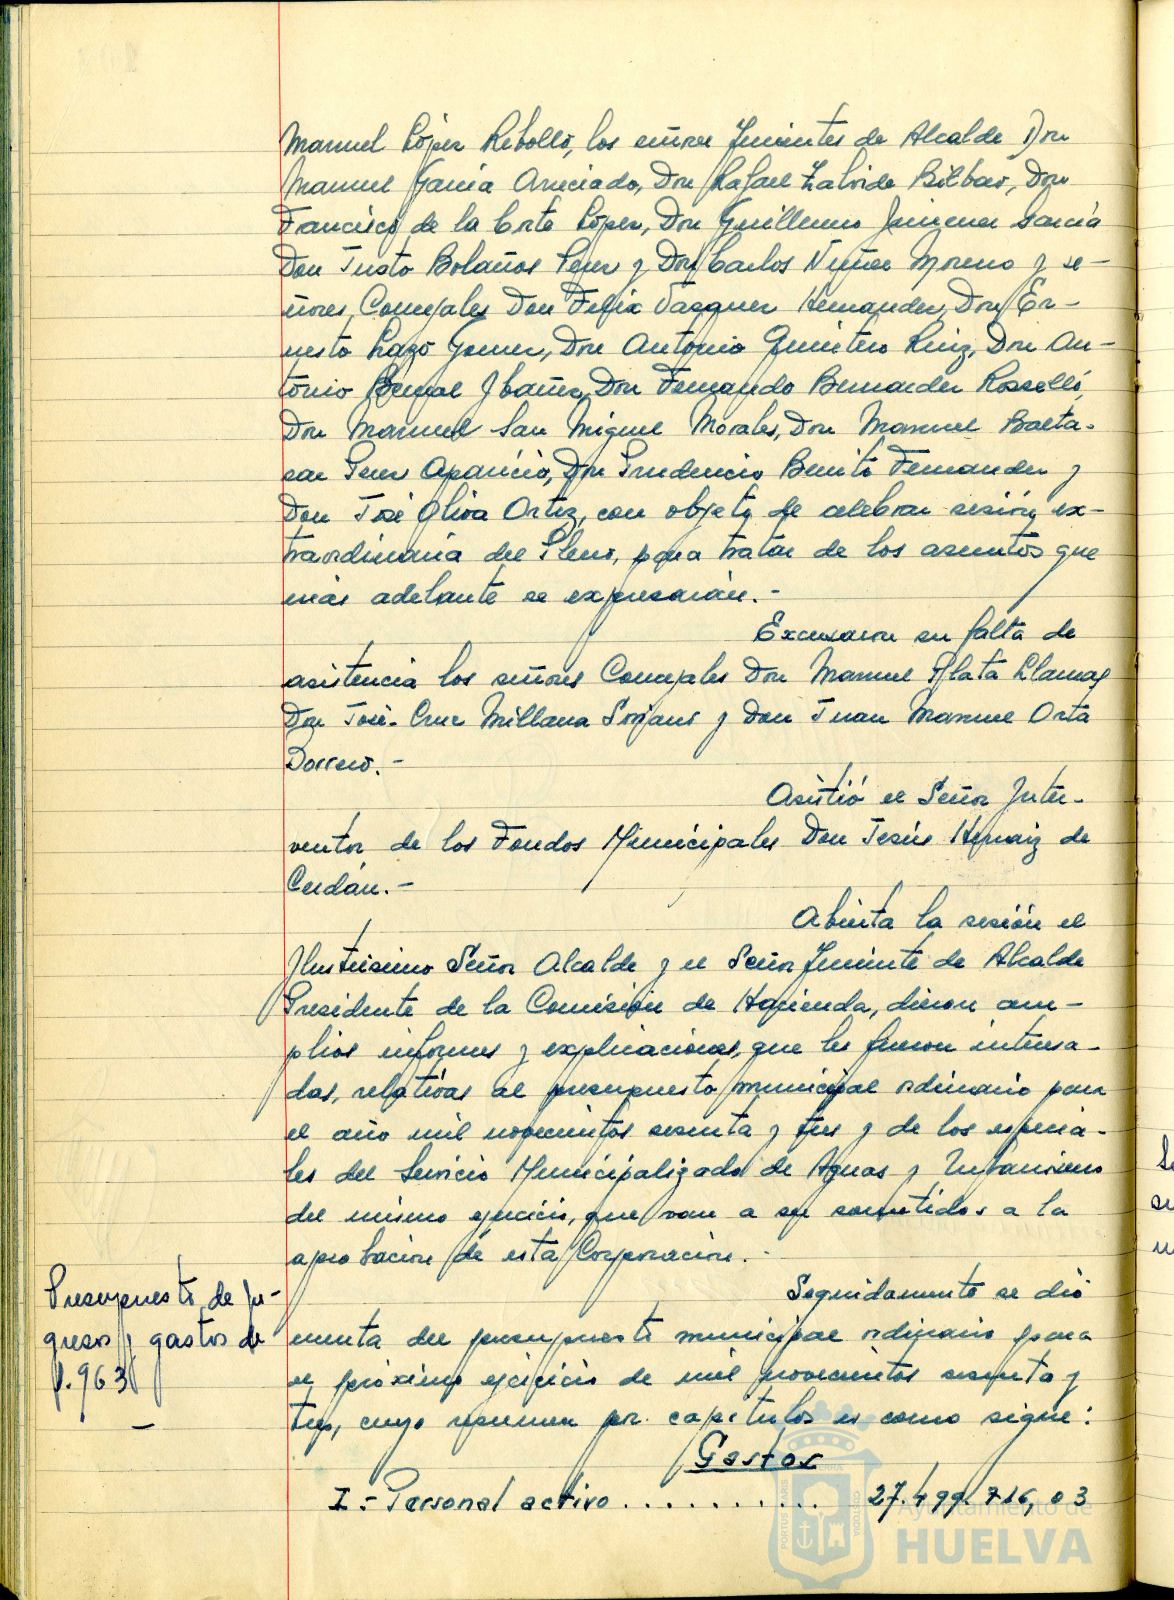 Manuel López Rebollo, los señores Tenientes de Alcalde Don
Manuel García Areciado, Don Rafael Zalvide Bilbao, Don
Francisco de la Corte López, Don Guillermo Jimenez García
Don Justo Bolaños Perez y Don Carlos Nuñez Moreno y se-
ñores Concejales Don Felix Vazquez Hernandez, Don Er-
nesto Lazo Gomez, Don Antonio Quintero Ruiz, Don An-
tonio Bernal Ibañez, Don Fernando Bernardez Rosselló,
Don Manuel San Miguel Morales, Don Manuel Balta-
sar Perez Aparicio, Don Prudencio Benito Fernandez y
Don José Oliva Ortiz, con objeto de celebrar sesión ex-
traordinaria del Pleno, para tratar de los asuntos que
más adelante se expresarán.-
Excusaron su falta de
asistencia los señores Concejales Don Manuel Plata Llamas
Don José-Cruz Millana Soriano y Don Juan Manuel Orta
Borrero.-
Asistió el Señor Inter-
ventor de los Fondos Municipales Don Jesús Hernaiz de
Cerdán.-
Abierta la sesión el
Ilustrisimo Señor Alcalde y el Señor Teniente de Alcalde
Presidente de la Comisión de Hacienda, dieron am-
plios informes y explicaciones, que les fueron interesa-
das, relativas al presupuesto municipal ordinario para
el año mil novecientos sesenta y tres y de los especia-
les del Servicio Municipalizado de Aguas y Urbanismo
del mismo ejercicio, que van a ser sometidos a la
aprobación de esta Corporación.-
Presupuesto de In-
gresos y gastos de
p. 963
Seguidamente se dió
cuenta del presupuesto municipal ordinario para
el próximo ejercicio de mil novecientos sesenta y
tres, cuyo resumen por capitulos es como sigue:
Gastos
I.- Personal activo .......... 27.499.716,03
Ayuntamiento de
HUELVA
PORTUS MARIS
CUSTODIA